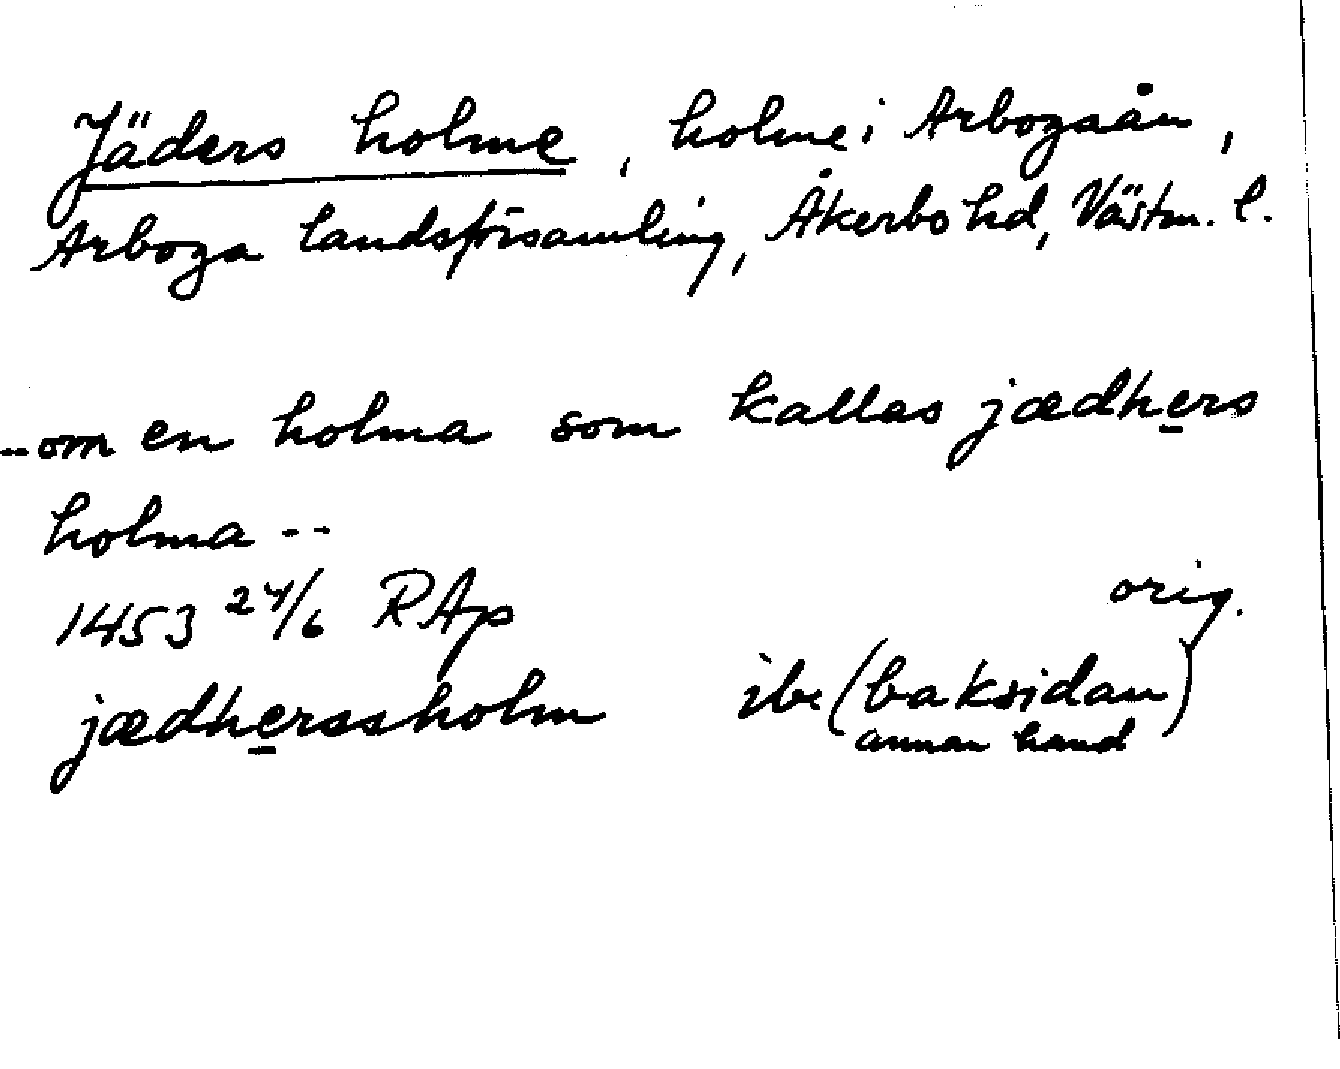 Jäders holme, holme i Arbogaån,
Arboga landsförsamling, Åkerbo hd, Västm. l.
--om en holma som kallas jædhers
holma --
1453 24/6 RAp orig.
jædherssholm ibe (baksidan)
annan hand